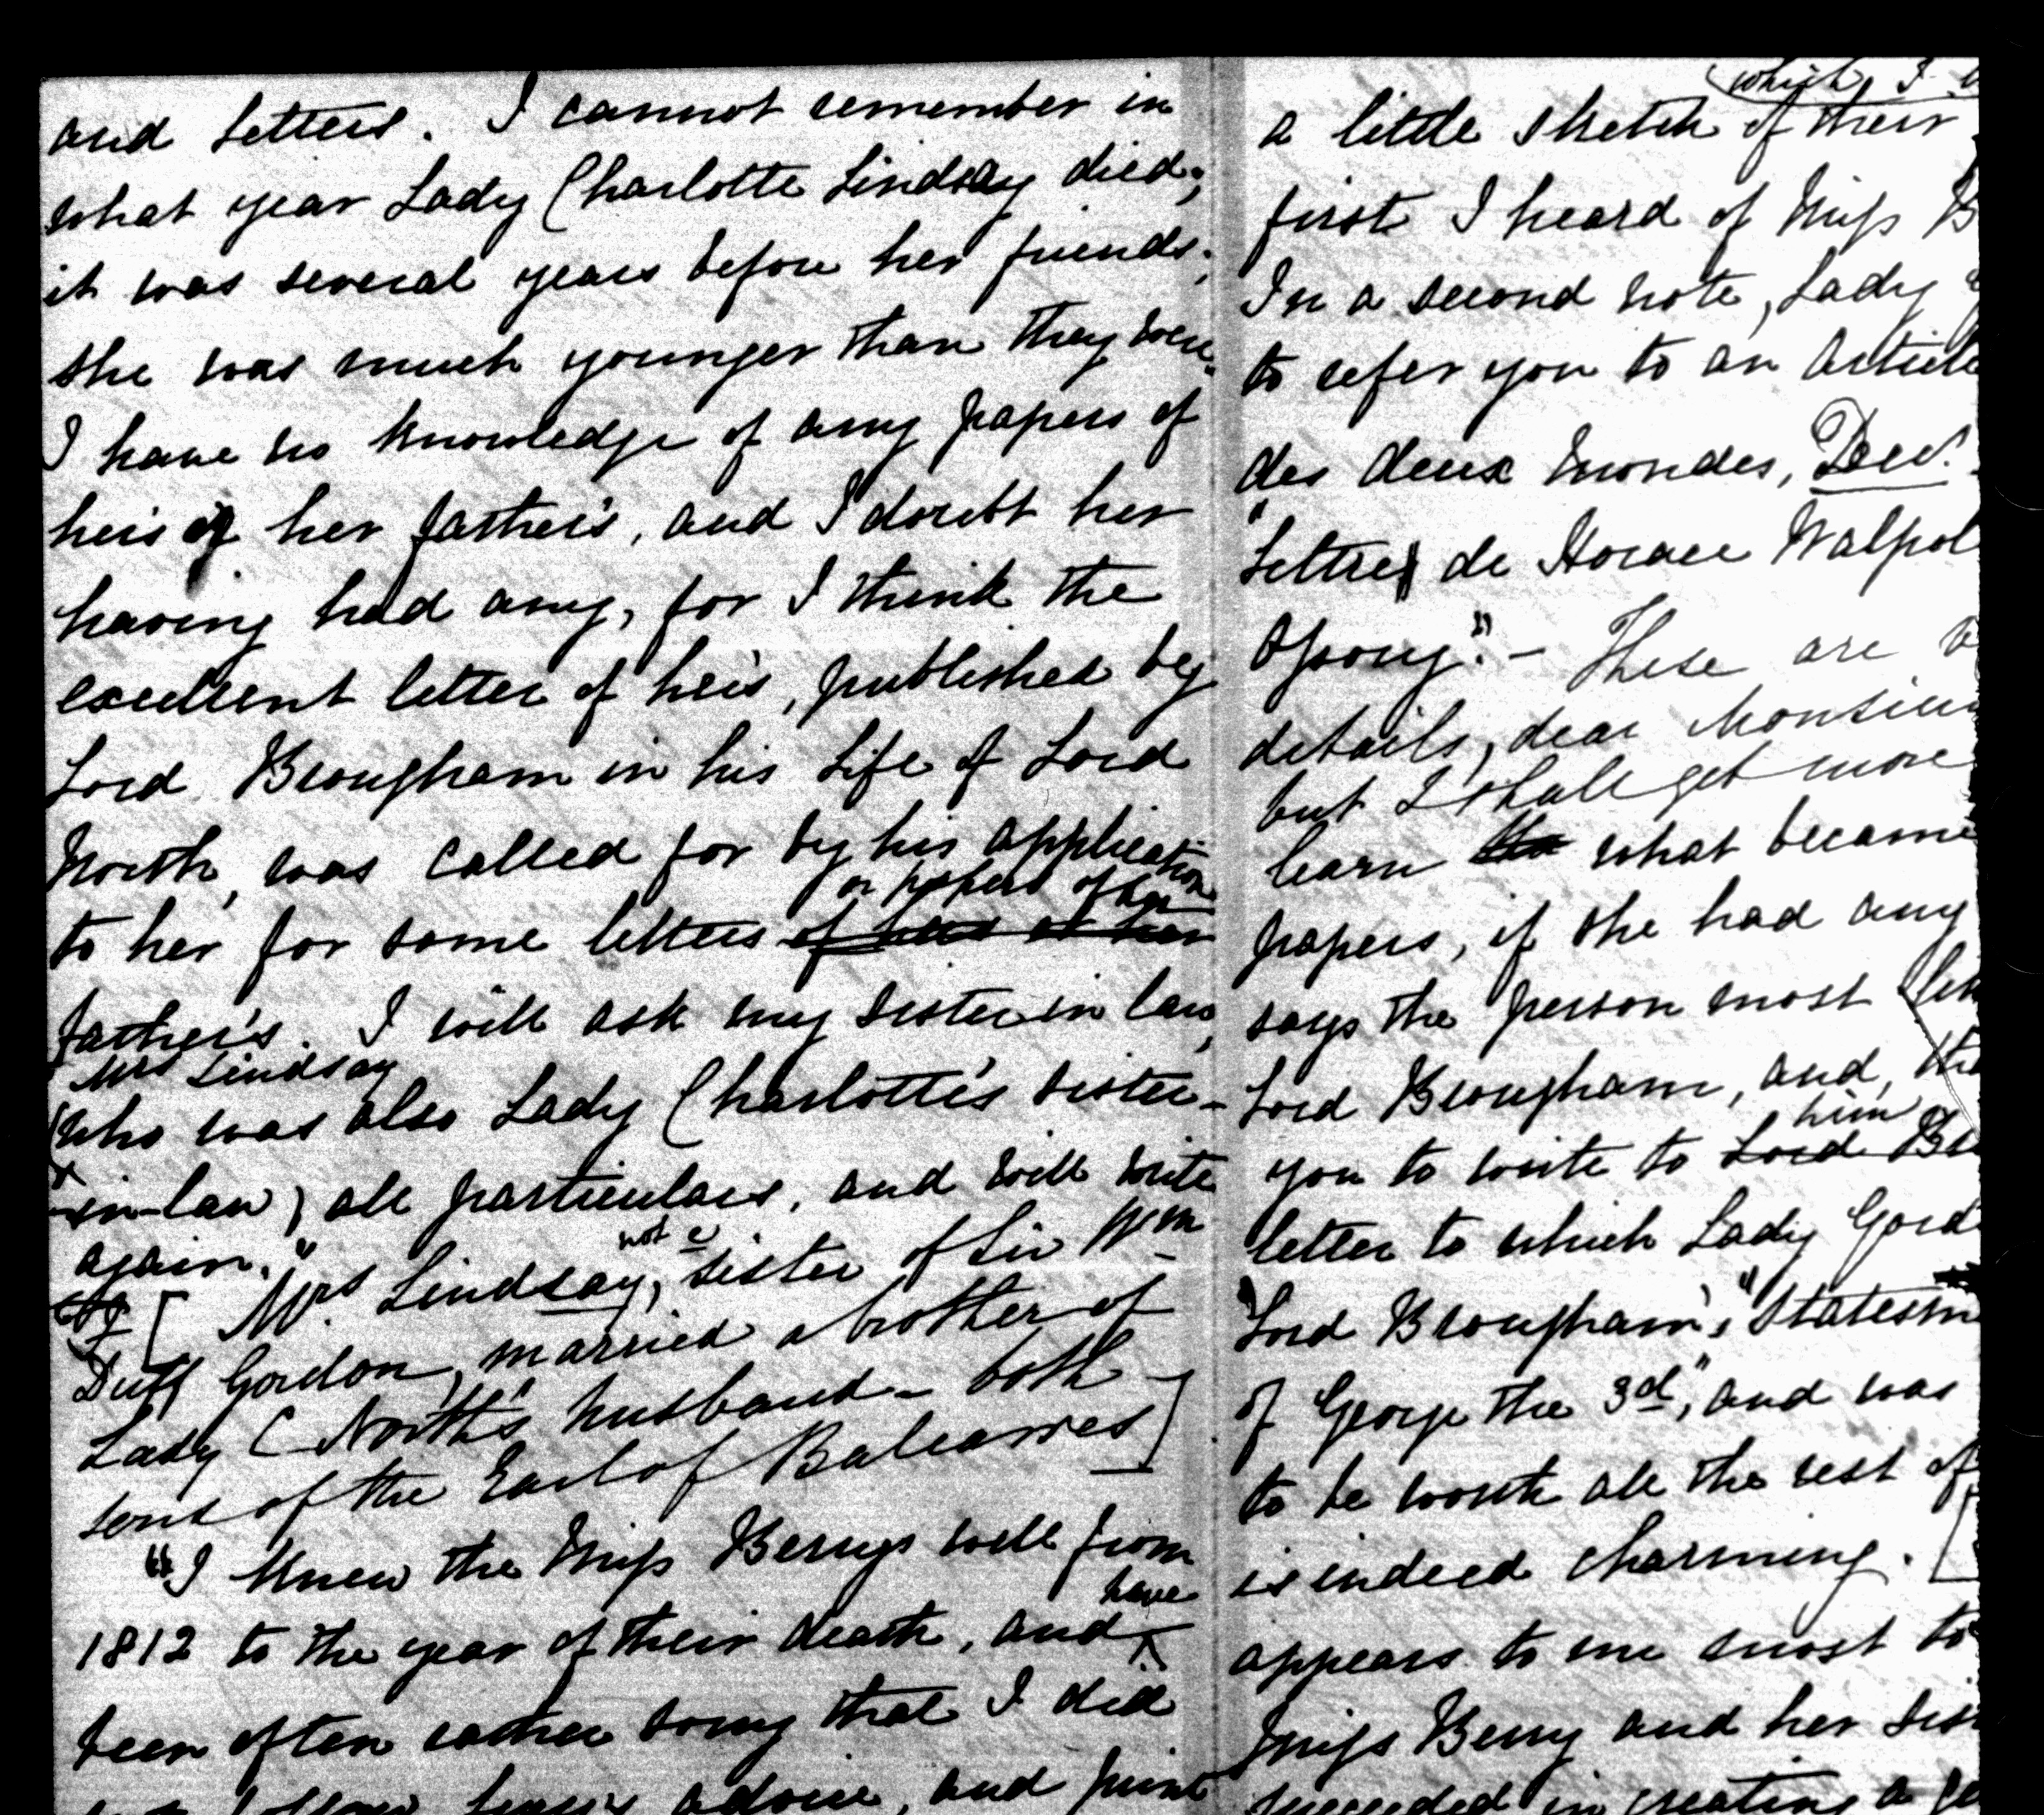 and letters. I cannot remember in
what year Lady Charlotte Lindsay died;
it was several years before her friends;
she was much younger than they were.
I have no knowledge of any papers of
hers of her father's, and I doubt her
having had any, for I think the
excellent letter of hers, published by
Lord Brougham in his Life of Lord
North, was called for by his application
or papers of her
to her for some letters of hers or her
father's. I will ask my sister in law,
Mrs Lindsay
(who was also Lady Charlotte's sister-
in-law) all particulars, and will write
again."
not a
[Mrs Lindsay, sister of Sir Wm
Duff Gordon, married a brother of
Lady C North's husband - both
sons of the Earl of Balcarres]
"I knew the Miss Berrys well from
have
1812 to the year of their death, and
been often rather sorry that I did
follow advice, and print
which I
a little sketch of their
first I heard of Miss B
In a second note, Lady
to refer you to an article
des deux mondes, Decr.
"Lettres de Horace Walpol
Ossory." - These are
details, dear Monsieur
but I shall get more
learn the what became
papers, if she had any
says the person most
Lord Brougham, and, the
him
you to write to Lord Br
letter to which Lady Gord
"Lord Brougham's "Statesm
of George the 3d", and was
to be worth all the rest of
is indeed charming. [
appears to me most to
Miss Berry and her sis
succeeded in creating a